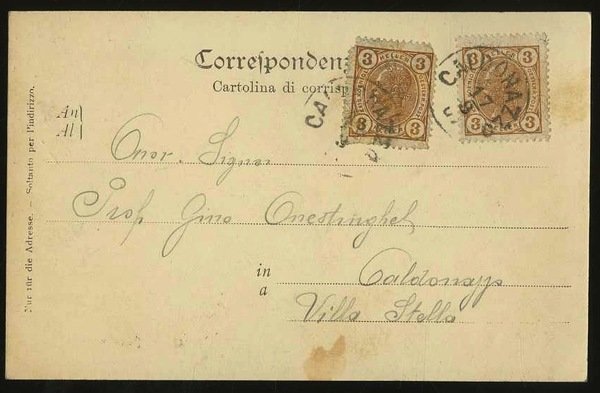 Correspondenz
Cartolina di corrisp
An
Al
Onor. Signor
Prof Gino Onestinghel
in
a
Caldonazzo
Villa Stella
Nur für die Adresse. – Soltanto per l'indirizzo.
3 3
3 3
3 3
3 3
CALDONAZZO
17